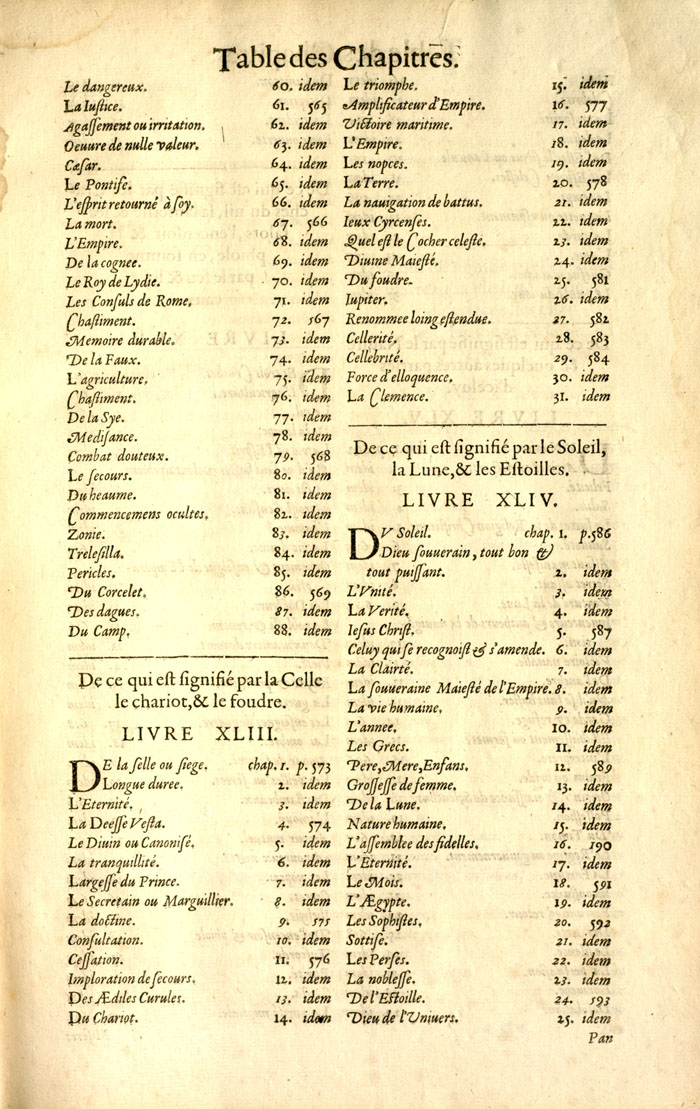 Table des Chapitres.
Le dangereux. 60. idem
La Iuſtice. 61. 565
Agaſſement ou irritation. 62. idem
Oeuure de nulle valeur. 63. idem
Cæſar. 64. idem
Le Pontife. 65. idem
L'eſprit retourné à ſoy. 66. idem
La mort. 67. 566
L'Empire. 68. idem
De la cognee. 69. idem
Le Roy de Lydie. 70. idem
Les Conſuls de Rome. 71. idem
Chaſtiment. 72. 567
Memoire durable. 73. idem
De la Faux. 74. idem
L'agriculture. 75. idem
Chaſtiment. 76. idem
De la Sye. 77. idem
Mediſance. 78. idem
Combat douteux. 79. 568
Le ſecours. 80. idem
Du heaume. 81. idem
Commencemens ocultes. 82. idem
Zonie. 83. idem
Treleſilla. 84. idem
Pericles. 85. idem
Du Corcelet. 86. 569
Des dagues. 87. idem
Du Camp. 88. idem
De ce qui eſt ſignifié par la Celle
le chariot, & le foudre.
LIVRE XLIII.
DE la ſelle ou ſiege. chap. 1. p. 573
Longue duree. 2. idem
L'Eternité. 3. idem
La Deéſſe Veſta. 4. 574
Le Diuin ou Canoniſé. 5. idem
La tranquillité. 6. idem
Largeſſe du Prince. 7. idem
Le Secretain ou Marguillier. 8. idem
La doctine. 9. 575
Conſultation. 10. idem
Ceſſation. 11. 576
Imploration de ſecours. 12. idem
Des Ædiles Curules. 13. idem
Du Chariot. 14. idem
Le triomphe. 15. idem
Amplificateur d'Empire. 16. 577
Victoire maritime. 17. idem
L'Empire. 18. idem
Les nopces. 19. idem
La Terre. 20. 578
La nauigation de battus. 21. idem
Ieux Cyrcenſes. 22. idem
Quel eſt le Cocher celeſte. 23. idem
Diuine Maieſté. 24. idem
Du foudre. 25. 581
Iupiter. 26. idem
Renommee loing eſtendue. 27. 582
Cellerité. 28. 583
Cellebrité. 29. 584
Force d'elloquence. 30. idem
La Clemence. 31. idem
De ce qui eſt ſignifié par le Soleil,
la Lune, & les Eſtoilles.
LIVRE XLIV.
DV Soleil. chap. 1. p.586
Dieu ſouuerain, tout bon &
tout puiſſant. 2. idem
L'Vnité. 3. idem
La Verité. 4. idem
Ieſus Chriſt. 5. 587
Celuy qui ſe recognoiſt & s'amende. 6. idem
La Clairté. 7. idem
La ſouueraine Maieſté de l'Empire. 8. idem
La vie humaine. 9. idem
L'annee. 10. idem
Les Grecs. 11. idem
Pere, Mere, Enfans. 12. 589
Groſſeſſe de femme. 13. idem
De la Lune. 14. idem
Nature humaine. 15. idem
L'aſſemblee des fidelles. 16. 190
L'Eternité. 17. idem
Le Mois. 18. 591
L'Ægypte. 19. idem
Les Sophiſtes. 20. 592
Sottiſe. 21. idem
Les Perſes. 22. idem
La nobleſſe. 23. idem
De l'Eſtoille. 24. 593
Dieu de l'Vniuers. 25. idem
Pan